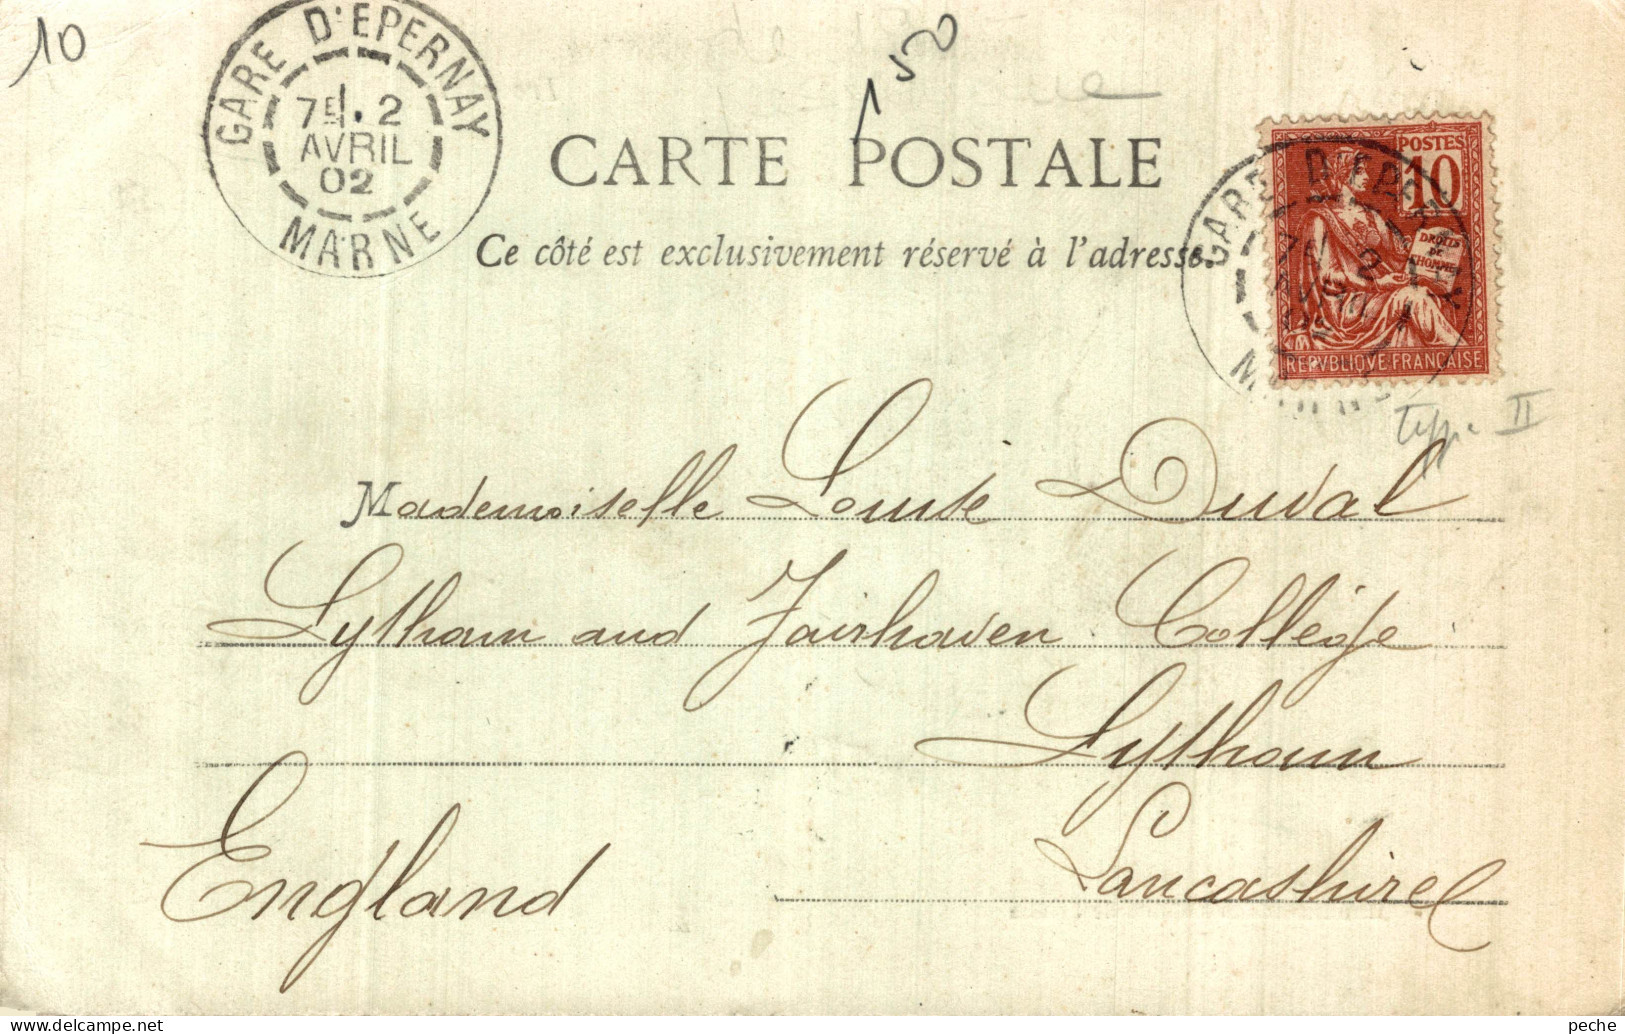 10
GARE D'EPERNAY
7E 1. 2
AVRIL
02
MARNE
1 50
CARTE POSTALE
Ce côté est exclusivement réservé à l'adresse.
POSTES
10
DROITS
DE
L'HOMME
REPVBLIQVE FRANÇAISE
GARE D'EPERNAY
2
AVRIL
MARNE
type II
Mademoiselle Louise Duval
Lytham and Fairhaven Collége
Lytham
Lancashire
England
peche